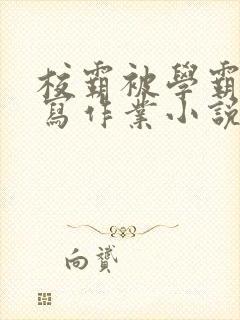 校霸被學霸
寫作業小說
向贇